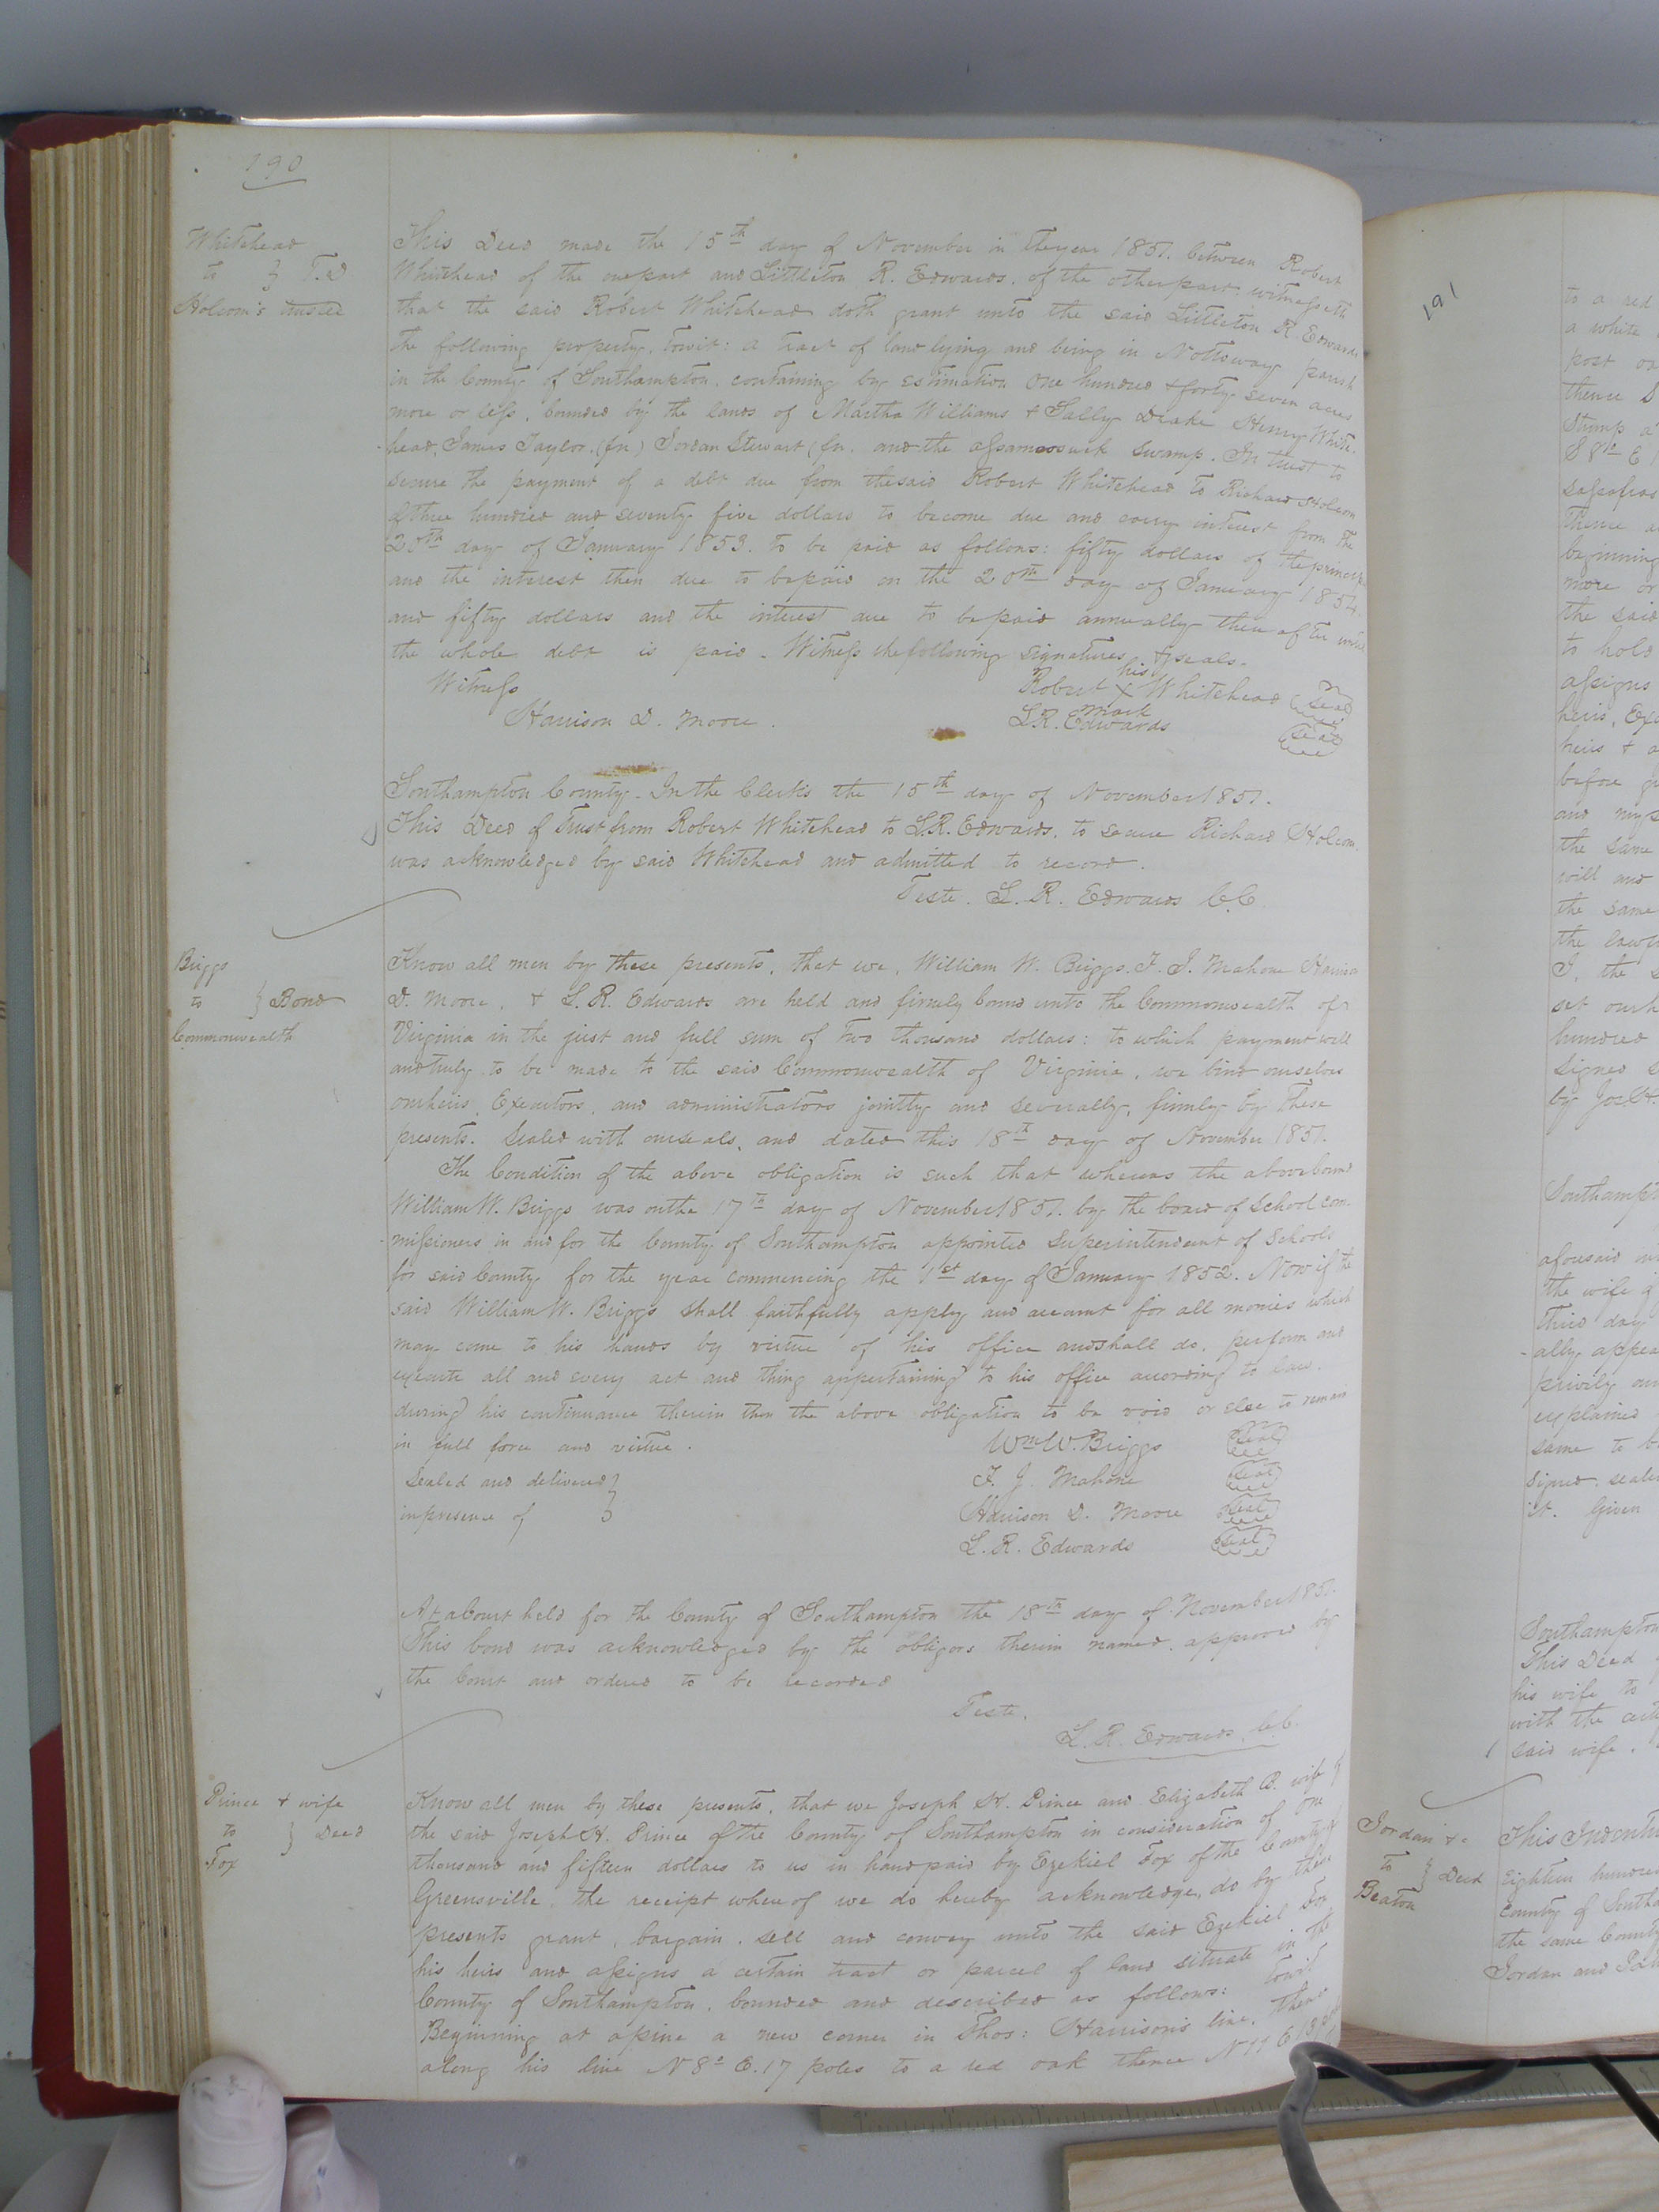 190
Whitehead
to } T.D
Holcom's trustee
This Deed made the 15th day of November in the year 1851. between Robert
Whitehead of the one part and Littleton R. Edwards. of the other part, witnesseth
that the said Robert Whitehead doth grant unto the said Littleton R. Edwards
the following property, towit: a tract of land lying and being in Nottoway parish
in the County of Southampton. containing by estimation one hundred & forty seven acres
more or less, bounded by the lands of Martha Williams & Sally Drake Henry White-
head, James Taylor, (fn) Jordan Stewart (fn. and the assamoosuck swamp. In trust to
secure the payment of a debt due from the said Robert Whitehead to Richard Holcom
of three hundred and seventy five dollars to become due and carry interest from the
20th day of January 1853. to be paid as follows: fifty dollars of the principal
and the interest then due to be paid on the 20th day of January 1854.
and fifty dollars and the interest due to be paid annually thereafter until
the whole debt is paid. Witness the following signatures & seals.
Witness
Robert his X mark Whitehead (seal)
Harrison D. Moore.
L.R. Edwards (seal)
Southampton County. In the Clerk's the 15th day of November 1851.
This Deed of Trust from Robert Whitehead to L.R. Edwards, to secure Richard Holcom.
was acknowledged by said Whitehead and admitted to record.
Teste. L. R. Edwards C.C.
Briggs
to } Bond
Commonwealth
Know all men by these presents, that we, William W. Briggs. F. J. Mahone Harrison
D. Moore, & L. R. Edwards are held and firmly bound unto the Commonwealth of
Virginia in the just and full sum of Two thousand dollars: to which payment well
and truly to be made to the said Commonwealth of Virginia, we bind ourselves
our heirs, Executors, and administrators jointly and severally, firmly by these
presents. Sealed with our seals, and dated this 18th day of November 1851.
The Condition of the above obligation is such that whereas the above bound
William W. Briggs was on the 17th day of November 1851. by the board of school com-
missioners in and for the County of Southampton appointed Superintendent of Schools
for said County for the year commencing the 1st day of January 1852. Now if the
said William W. Briggs shall faithfully apply and account for all monies which
may come to his hands by virtue of his office and shall do, perform and
execute all and every act and thing appertaining to his office according to law.
during his continuance therein then the above obligation to be void or else to remain
in full force and virtue.
Wm W. Briggs (seal)
Sealed and delivered }
F. J. Mahone (seal)
in presence of }
Harrison D. Moore (seal)
L. R. Edwards (seal)
At a Court held for the County of Southampton the 18th day of November 1851.
This bond was acknowledged by the obligors therein named. approved by
the Court and ordered to be recorded
Teste.
L. R. Edwards, C.C.
Prince & wife
to } Deed
Fox
Know all men by these presents, that we Joseph H. Prince and Elizabeth B. wife of
the said Joseph H. Prince of the County of Southampton in consideration of one
thousand and fifteen dollars to us in hand paid by Ezekiel Fox of the County of
Greensville, the receipt whereof we do hereby acknowledge, do by these
presents grant, bargain. sell and convey unto the said Ezekiel Fox
his heirs and assigns a certain tract or parcel of land situate in the
County of Southampton, bounded and described as follows: towit
Beginning at a pine a new corner in Thos: Harrison's line, thence
along his line N 8° E. 17 poles to a red oak thence N
191
to a red
a white
post oa
thence S
Stump a
sassafras
thence
beginning
more or
the said
to hold
assigns
heirs, Exe
heirs & a
before
and mys
the same
will and
the same
the lawf
I, the s
set our h
hundred
signed s
by Jos H.
Southampt
aforesaid
the wife of
third day
ally appea
privily
explained
same to be
signed. seale
it. Given
Southampton
This Deed
his wife to
with the cert
said wife.
Jordan &c
to } Deed
Beaton
This Indentu
Eighteen hundred
County of Southa
the same County
Jordan and